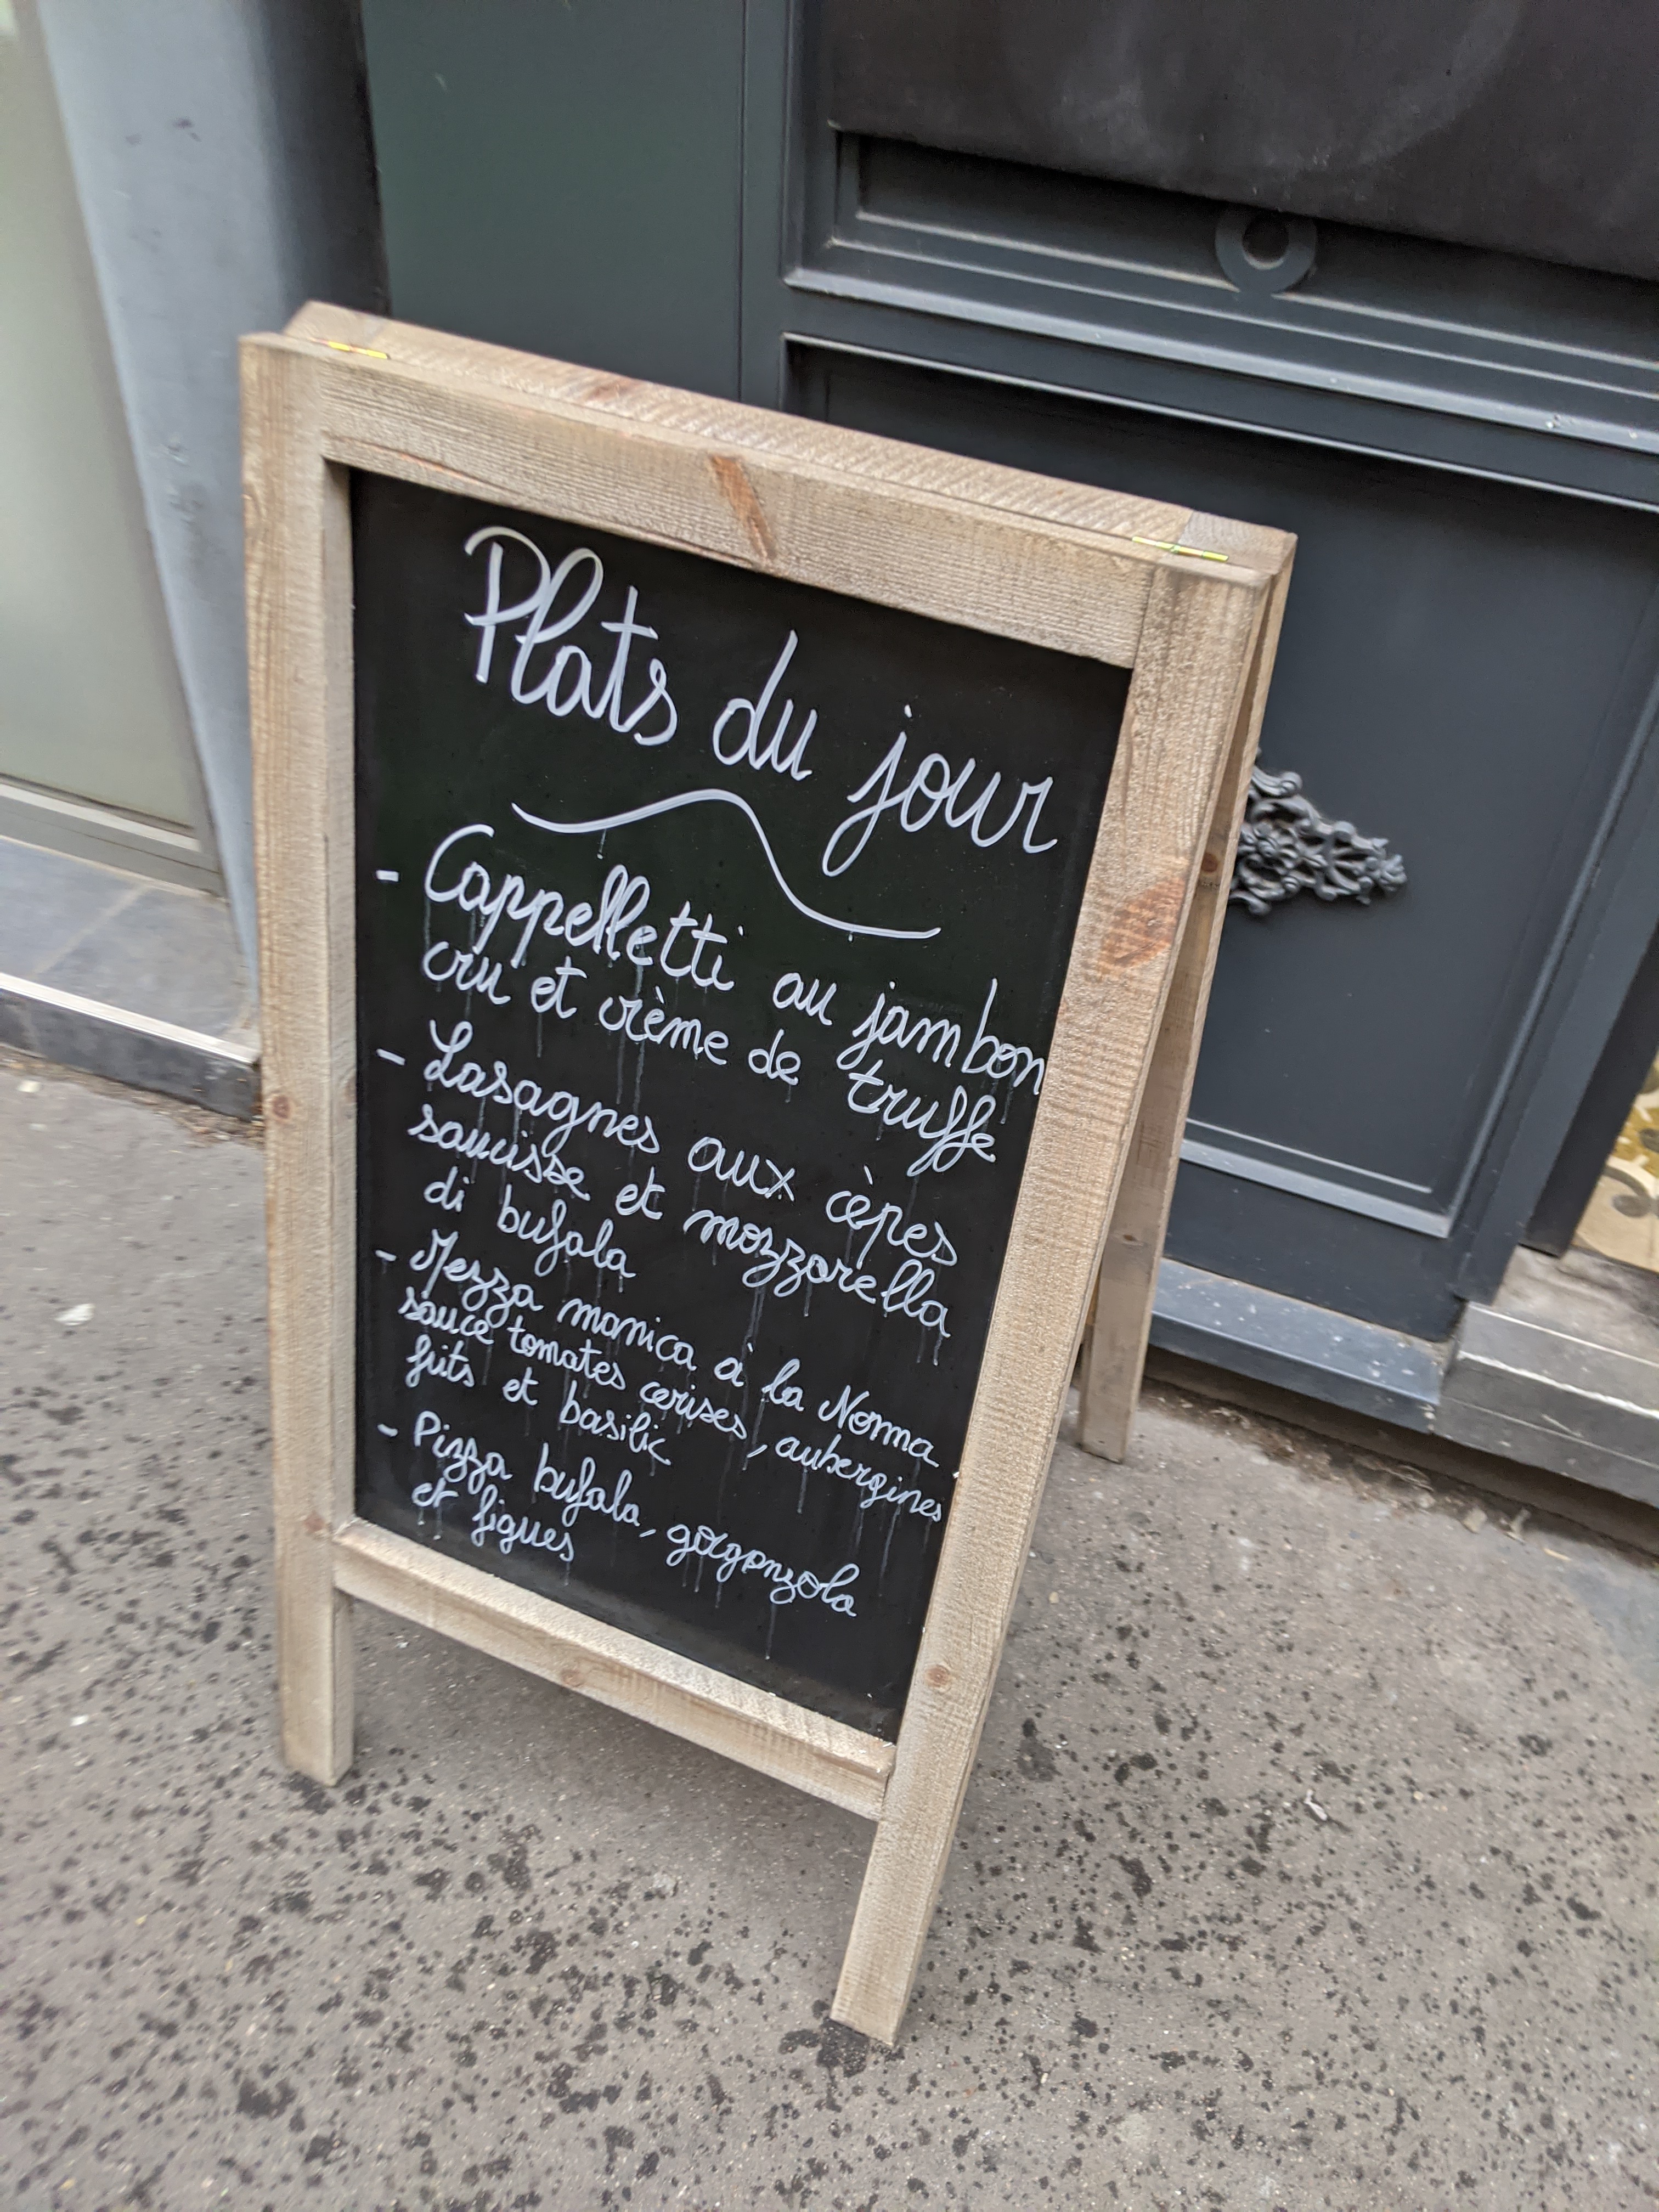 Plats du jour
- Cappelletti au jambon
cru et crème de truffe
- Lasagnes aux cèpes
saucisse et mozzarella
di bufala
- Mezza manica à la Norma
sauce tomates cerises, aubergines
frits et basilic
- Pizza bufala, gorgonzola
et figues